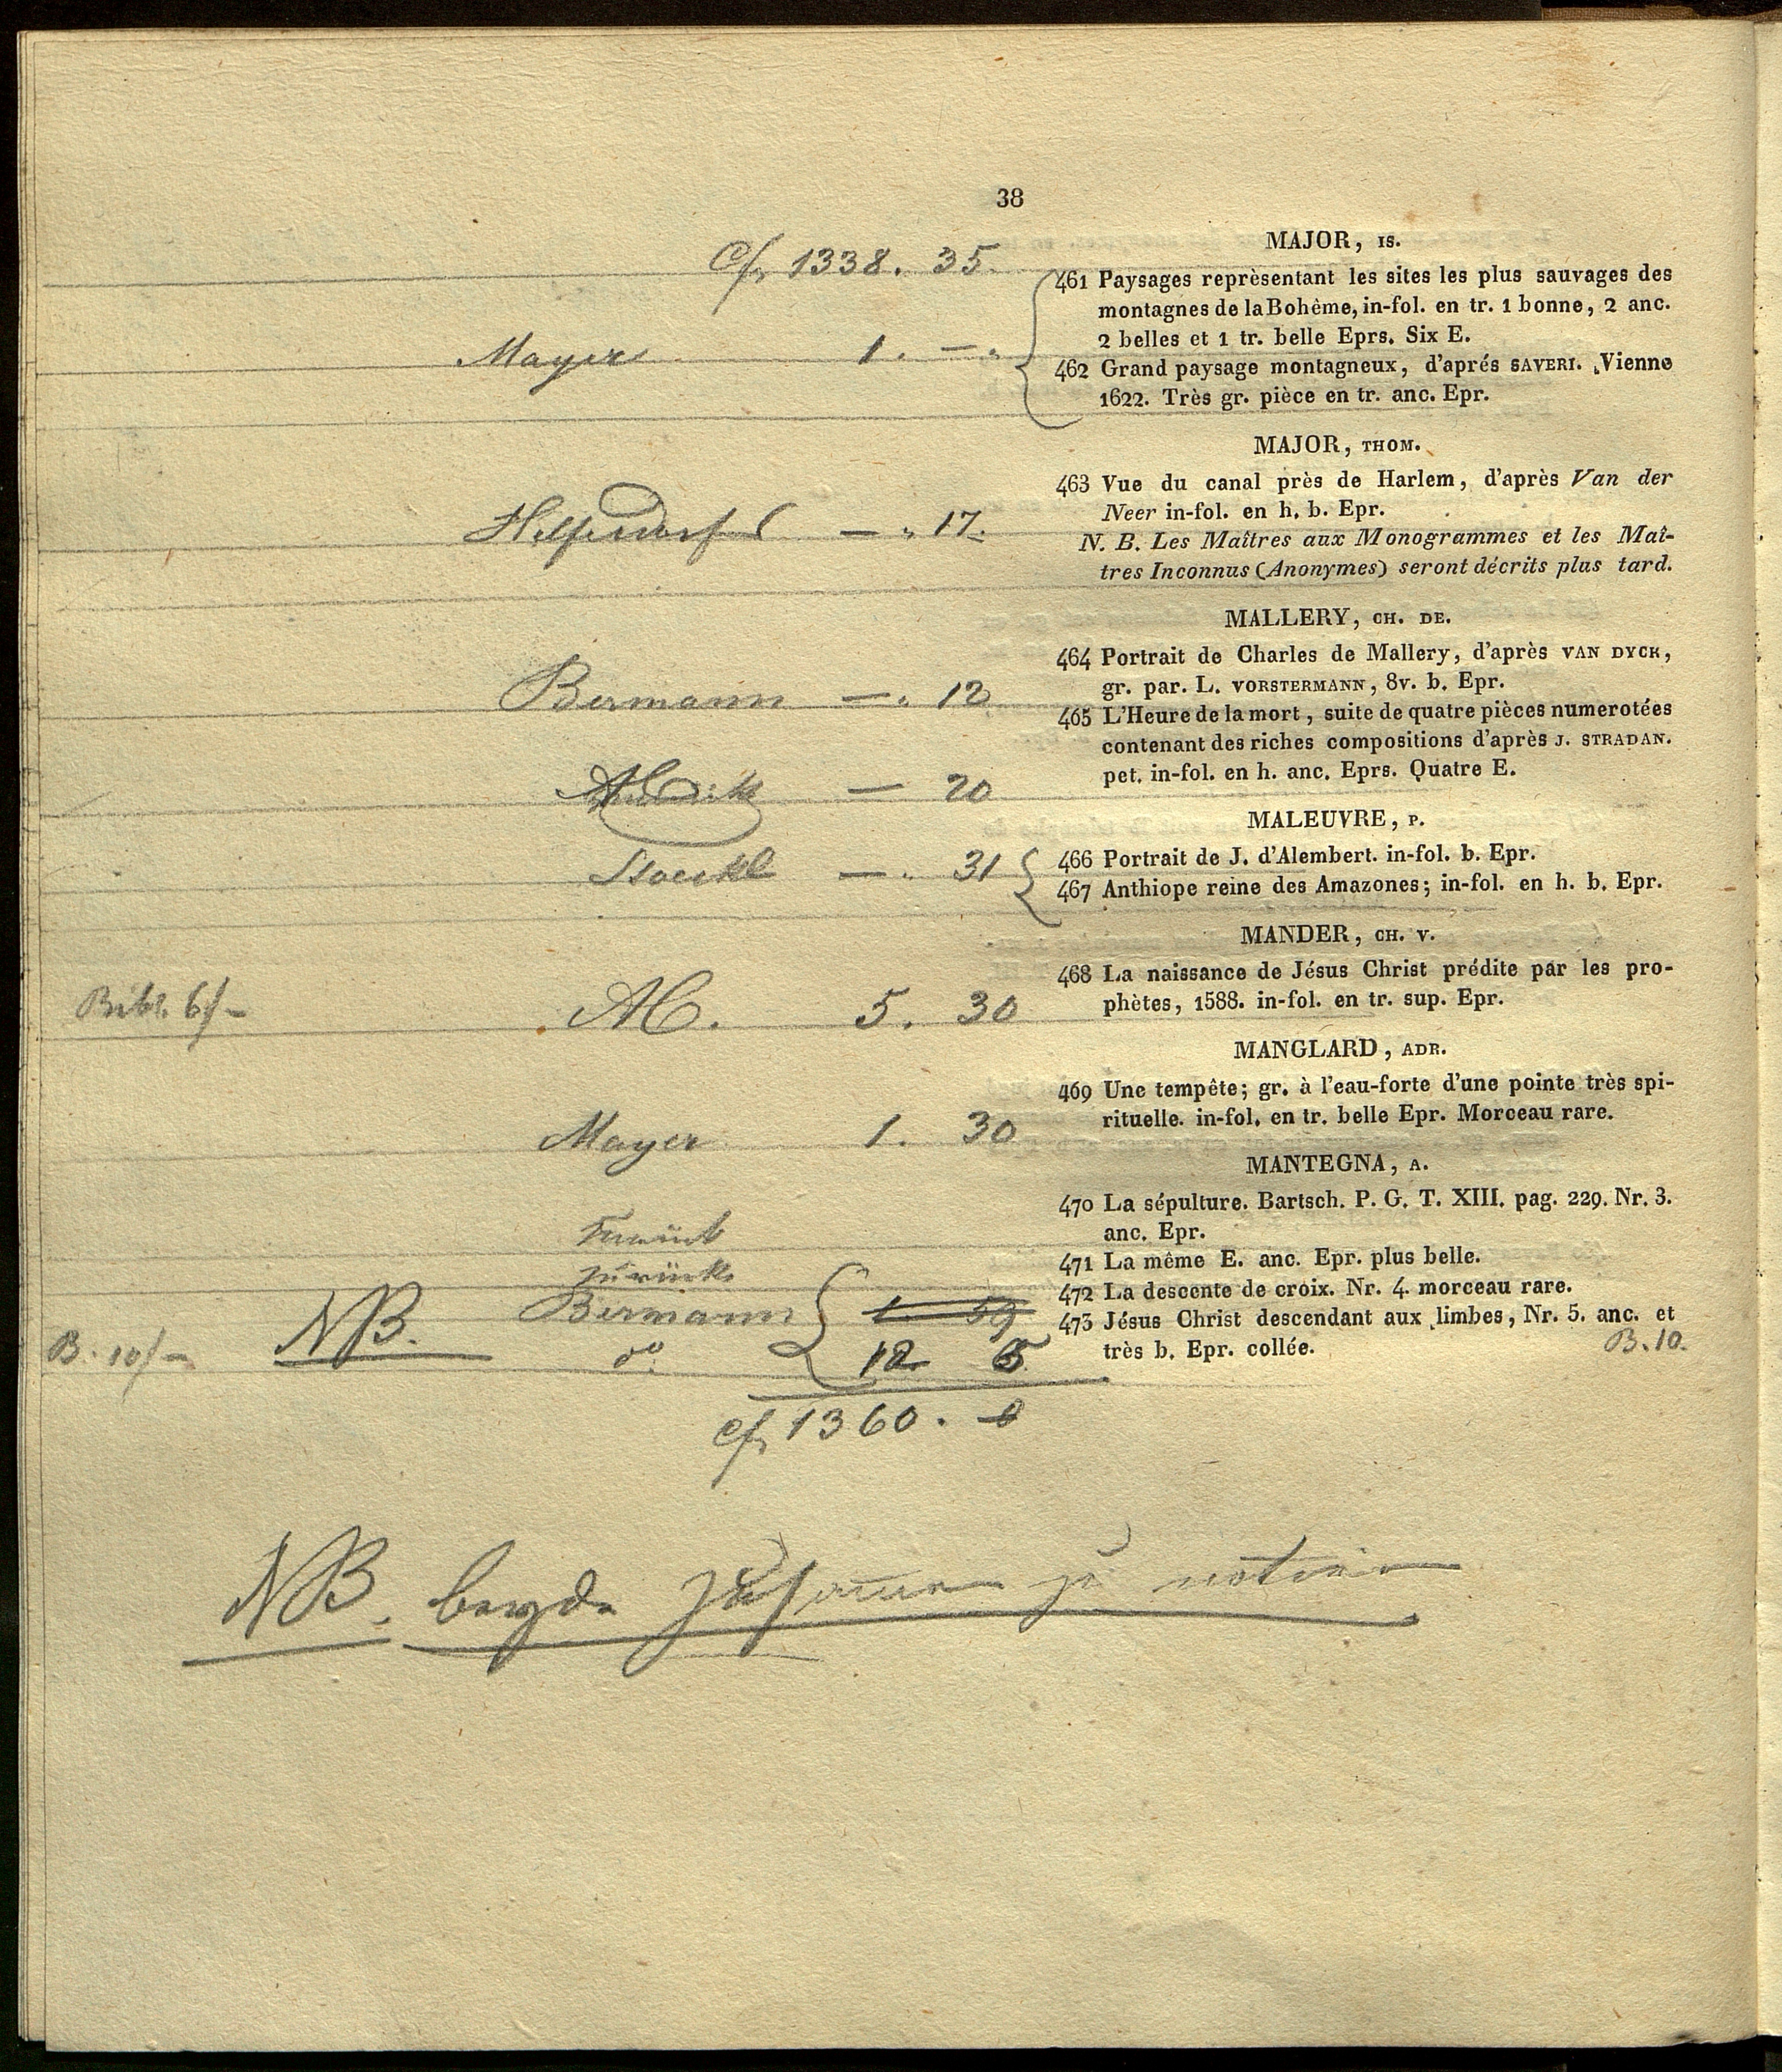 38
Cf. 1338. 35.
MAJOR, IS.
461 Paysages reprèsentant les sites les plus sauvages des
montagnes de la Bohême, in-fol. en tr. 1 bonne, 2 anc.
2 belles et 1 tr. belle Eprs. Six E.
Mayer 1. —.
462 Grand paysage montagneux, d'aprés SAVERI. Vienne
1622. Très gr. pièce en tr. anc. Epr.
MAJOR, THOM.
463 Vue du canal près de Harlem, d'après Van der
Neer in-fol. en h. b. Epr.
— . 17.
N. B. Les Maîtres aux Monogrammes et les Maî-
tres Inconnus (Anonymes) seront décrits plus tard.
MALLERY, CH. DE.
464 Portrait de Charles de Mallery, d'après VAN DYCK,
gr. par. L. VORSTERMANN, 8v. b. Epr.
Bermann — . 12
465 L'Heure de la mort, suite de quatre pièces numerotées
contenant des riches compositions d'après J. STRADAN.
pet. in-fol. en h. anc. Eprs. Quatre E.
— 20
MALEUVRE, P.
466 Portrait de J. d'Alembert. in-fol. b. Epr.
Stoeckl — . 31
467 Anthiope reine des Amazones; in-fol. en h. b. Epr.
MANDER, CH. V.
468 La naissance de Jésus Christ prédite par les pro-
phètes, 1588. in-fol. en tr. sup. Epr.
Bibl. 6f — AC. 5. 30
MANGLARD, ADR.
469 Une tempête; gr. à l'eau-forte d'une pointe très spi-
rituelle. in-fol. en tr. belle Epr. Morceau rare.
Mayer 1. 30
MANTEGNA, A.
470 La sépulture. Bartsch. P. G. T. XIII. pag. 229. Nr. 3.
anc. Epr.
zurück
471 La même E. anc. Epr. plus belle.
zurück
472 La descente de croix. Nr. 4. morceau rare.
Bermann 1. 59
473 Jésus Christ descendant aux limbes, Nr. 5. anc. et
très b. Epr. collée. B. 10.
B. 10f — NB. do. 12 5
Cf. 1360.
NB. beyde zusammen zu notiren